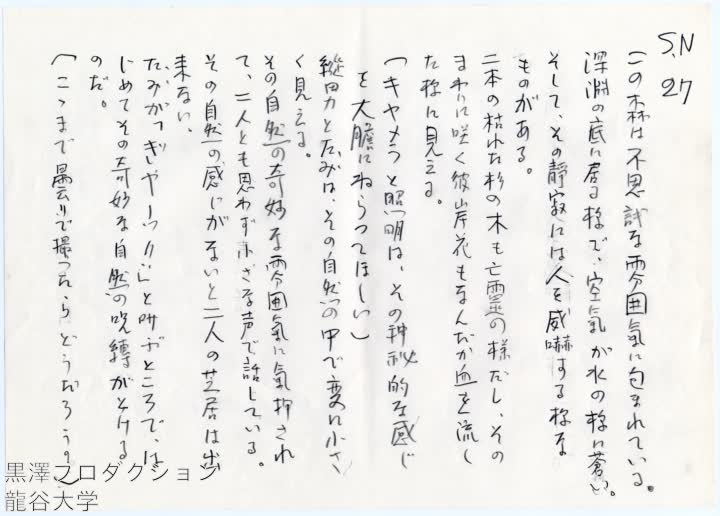 S.N
27
この森は不思議な雰囲氣に包まれている。
深淵の底に居る様で、空氣が水の様に蒼い。
そして、その靜寂には人を威嚇する様な
ものがある。
二本の枯れた杉の木も亡靈の様だし、その
まわりに咲く彼岸花もなんだか血を流し
た様に見える。
(キャメラと照明は、その神秘的な感じ
を大膽にねらつてほしい)
縦田力とたみは、その自然の中で変に小さ
く見える。
その自然の奇妙な雰囲氣に氣押され
て、二人とも思わず小さな声で話している。
その自然の感じがないと二人の芝居は出
来ない。
たみがっギャーッ
と叫ぶところで、は
じめてその奇妙な自然の呪縛がとける
のだ。
(こゝまで曇りで撮つたらどうだろうか)
黒澤プロダクション
龍谷大学